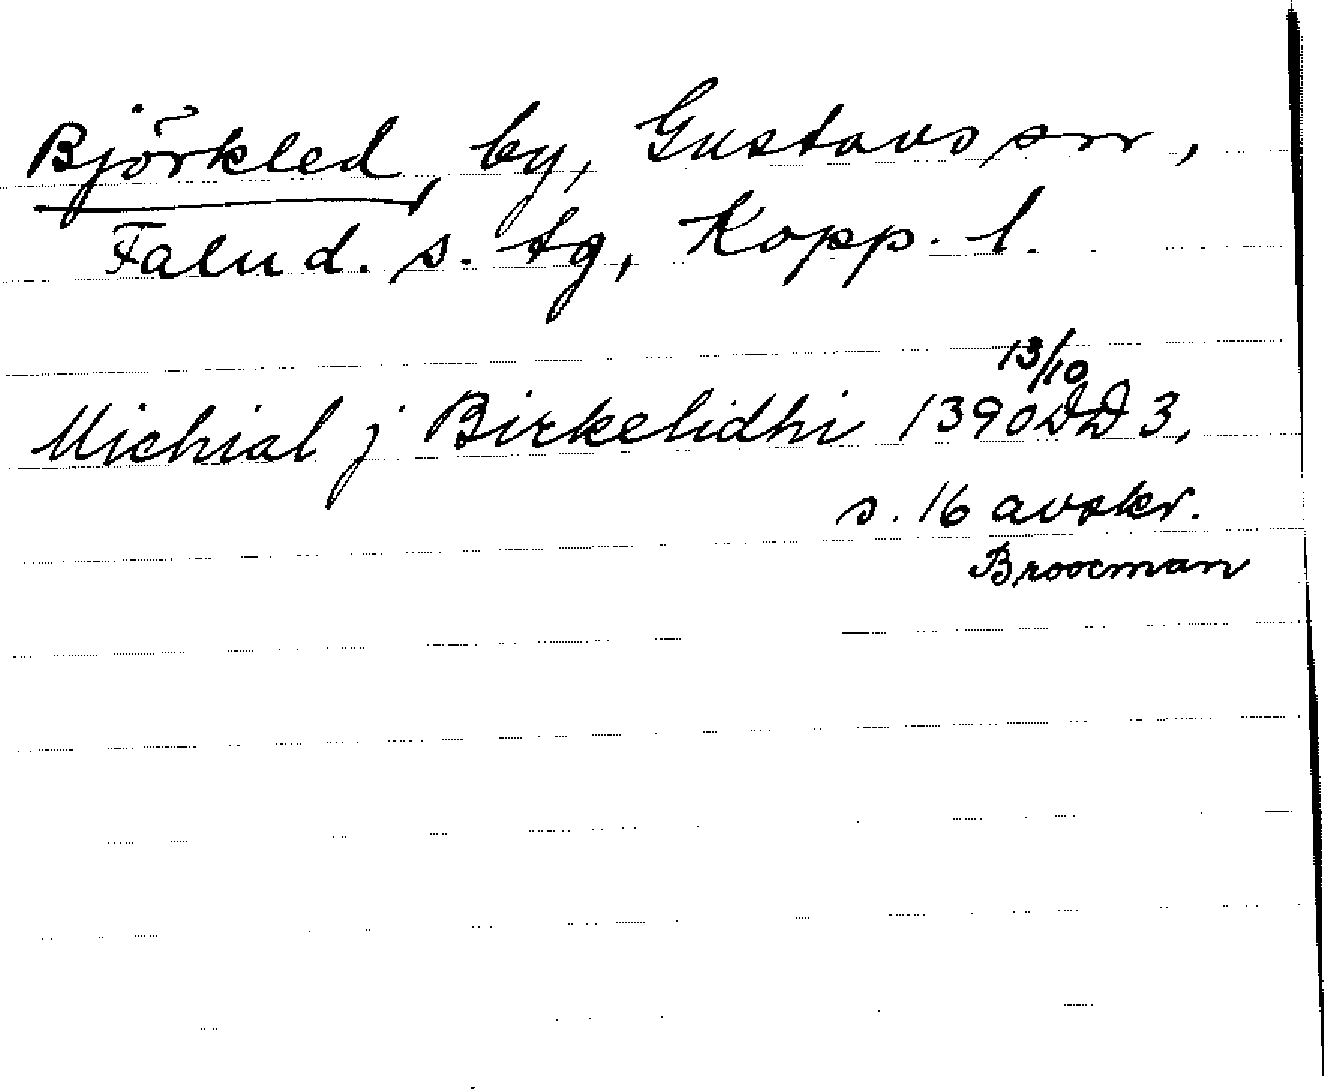 Björkled, by, Gustavs sn,
Falu d. s. tg, Kopp. l.
13/10
Michial j Birkelidhi 1390 DD 3,
s. 16 avskr.
Broocman